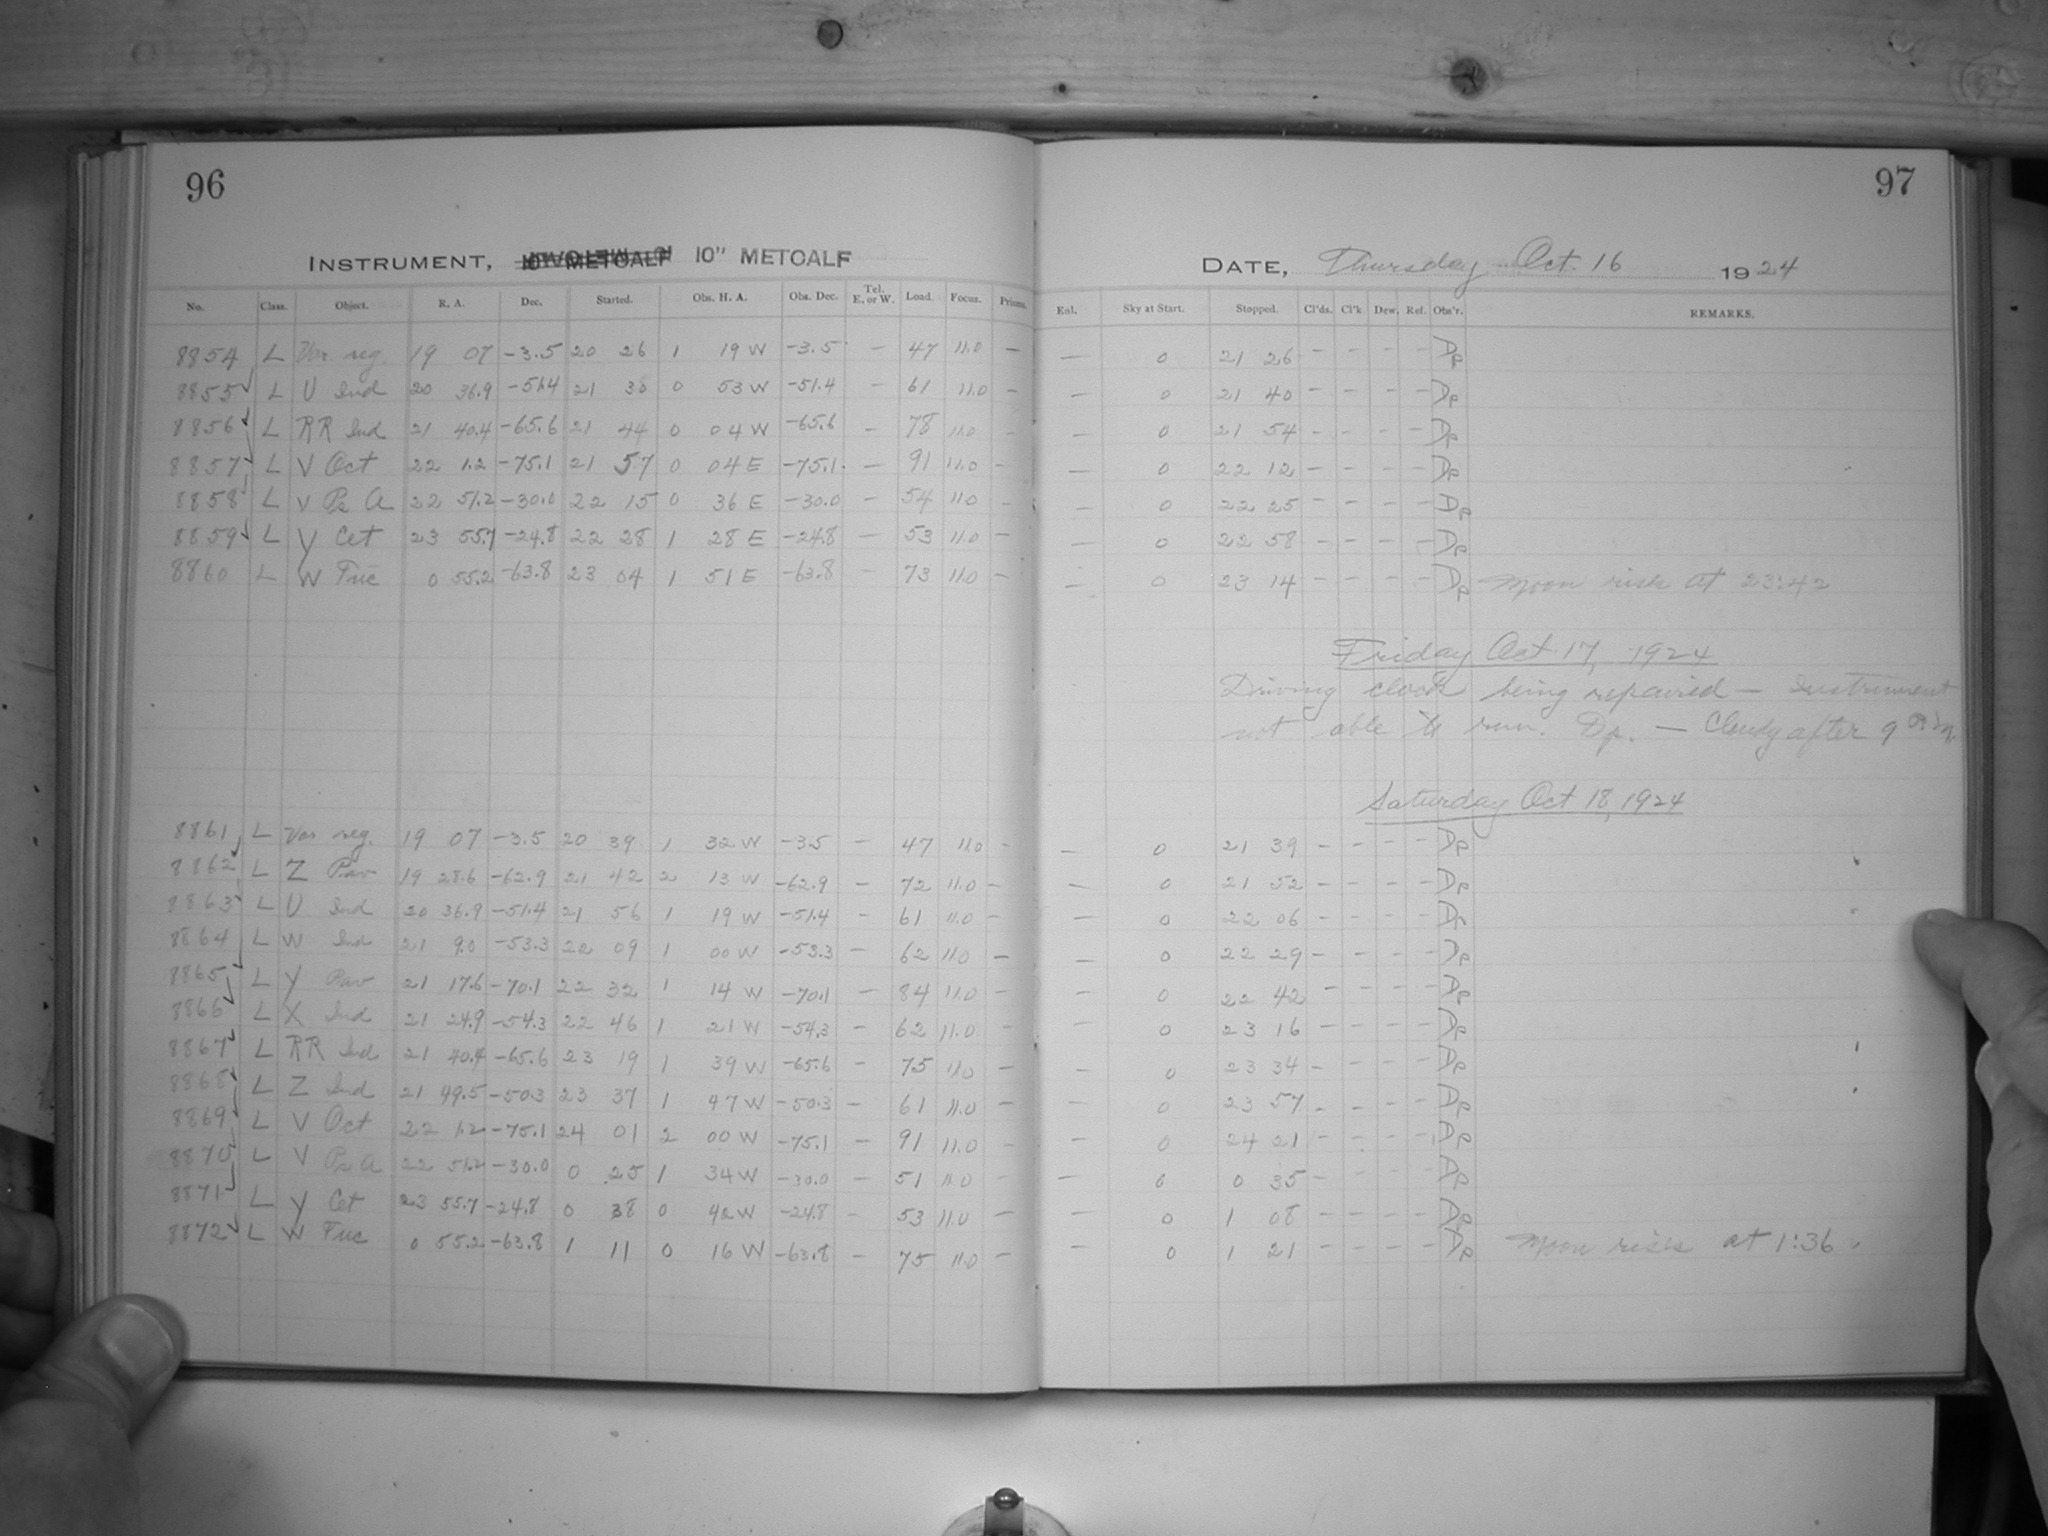 96
INSTRUMENT, 10" METCALF
No. Class. Object. R. A. Dec. Started. Obs. H. A. Obs. Dec. Tel. E. or W. Load. Focus. Prisms.
8854 L Var. reg. 19 07 -3.5 20 26 1 19 W -3.5 - 47 11.0 -
8855 L U Ind 20 36.9 -51.4 21 30 0 53 W -51.4 - 61 11.0 -
8856 L RR Ind 21 40.4 -65.6 21 44 0 04 W -65.6 - 78 11.0 -
8857 L V Oct 22 1.2 -75.1 21 57 0 04 E -75.1 - 91 11.0 -
8858 L V Ps A 22 51.2 -30.0 22 15 0 36 E -30.0 - 54 11.0 -
8859 L Y Cet 23 55.7 -24.8 22 28 1 28 E -24.8 - 53 11.0 -
8860 L W Tuc 0 55.2 -63.8 23 04 1 51 E -63.8 - 73 11.0 -
8861 L Var reg. 19 07 -3.5 20 39 1 32 W -3.5 - 47 11.0 -
8862 L Z Pav 19 28.6 -62.9 21 42 2 13 W -62.9 - 72 11.0 -
8863 L U Ind 20 36.9 -51.4 21 56 1 19 W -51.4 - 61 11.0 -
8864 L W Ind 21 9.0 -53.3 22 09 1 00 W -53.3 - 62 11.0 -
8865 L Y Pav 21 17.6 -70.1 22 32 1 14 W -70.1 - 84 11.0 -
8866 L X Ind 21 24.9 -54.3 22 46 1 21 W -54.3 - 62 11.0 -
8867 L RR Ind 21 40.4 -65.6 23 19 1 39 W -65.6 - 75 11.0 -
8868 L Z Ind 21 49.5 -50.3 23 37 1 47 W -50.3 - 61 11.0 -
8869 L V Oct 22 1.2 -75.1 24 01 2 00 W -75.1 - 91 11.0 -
8870 L V Ps A 22 51.2 -30.0 0 25 1 34 W -30.0 - 51 11.0 -
8871 L Y Cet 23 55.7 -24.8 0 38 0 42 W -24.8 - 53 11.0 -
8872 L W Tuc 0 55.2 -63.8 1 11 0 16 W -63.8 - 75 11.0 -
97
DATE, Thursday Oct. 16 1924
Enl. Sky at Start. Stopped. Cl'ds. Cl'k Dew. Ref. Obs'r. REMARKS.
- 0 21 26 - - - - Dp
- 0 21 40 - - - - Dp
- 0 21 54 - - - - Dp
- 0 22 12 - - - - Dp
- 0 22 25 - - - - Dp
- 0 22 58 - - - - Dp
- 0 23 14 - - - - Dp Moon rise at 23:42
Friday Oct. 17, 1924
Driving clock being repaired - instrument
not able to run. Dp. - Cloudy after 9
Saturday Oct 18, 1924
- 0 21 39 - - - - Dp
- 0 21 52 - - - - Dp
- 0 22 06 - - - - Dp
- 0 22 29 - - - - Dp
- 0 22 42 - - - - Dp
- 0 23 16 - - - - Dp
- 0 23 34 - - - - Dp
- 0 23 57 - - - - Dp
- 0 24 21 - - - - Dp
- 0 0 35 - - - - Dp
- 0 1 08 - - - - Dp
- 0 1 21 - - - - Dp Moon rise at 1:36